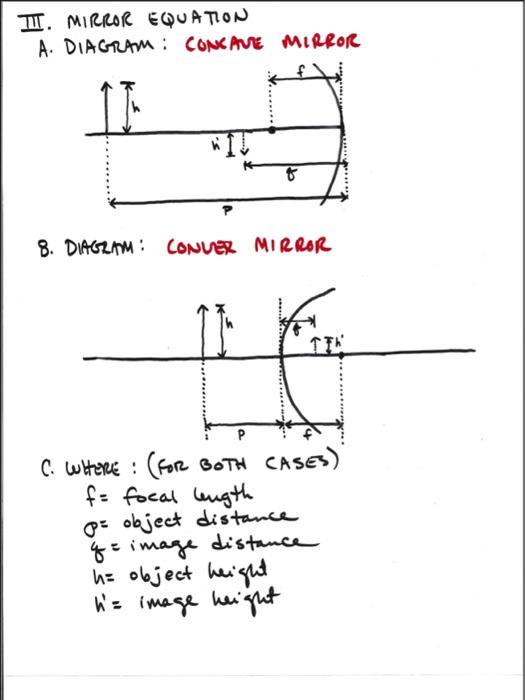 III. MIRROR EQUATION
A. DIAGRAM: CONCAVE MIRROR
f
h
h'
q
p
B. DIAGRAM: CONVEX MIRROR
h
q
h'
p
f
C. WHERE: (FOR BOTH CASES)
f = focal length
p = object distance
q = image distance
h = object height
h' = image height